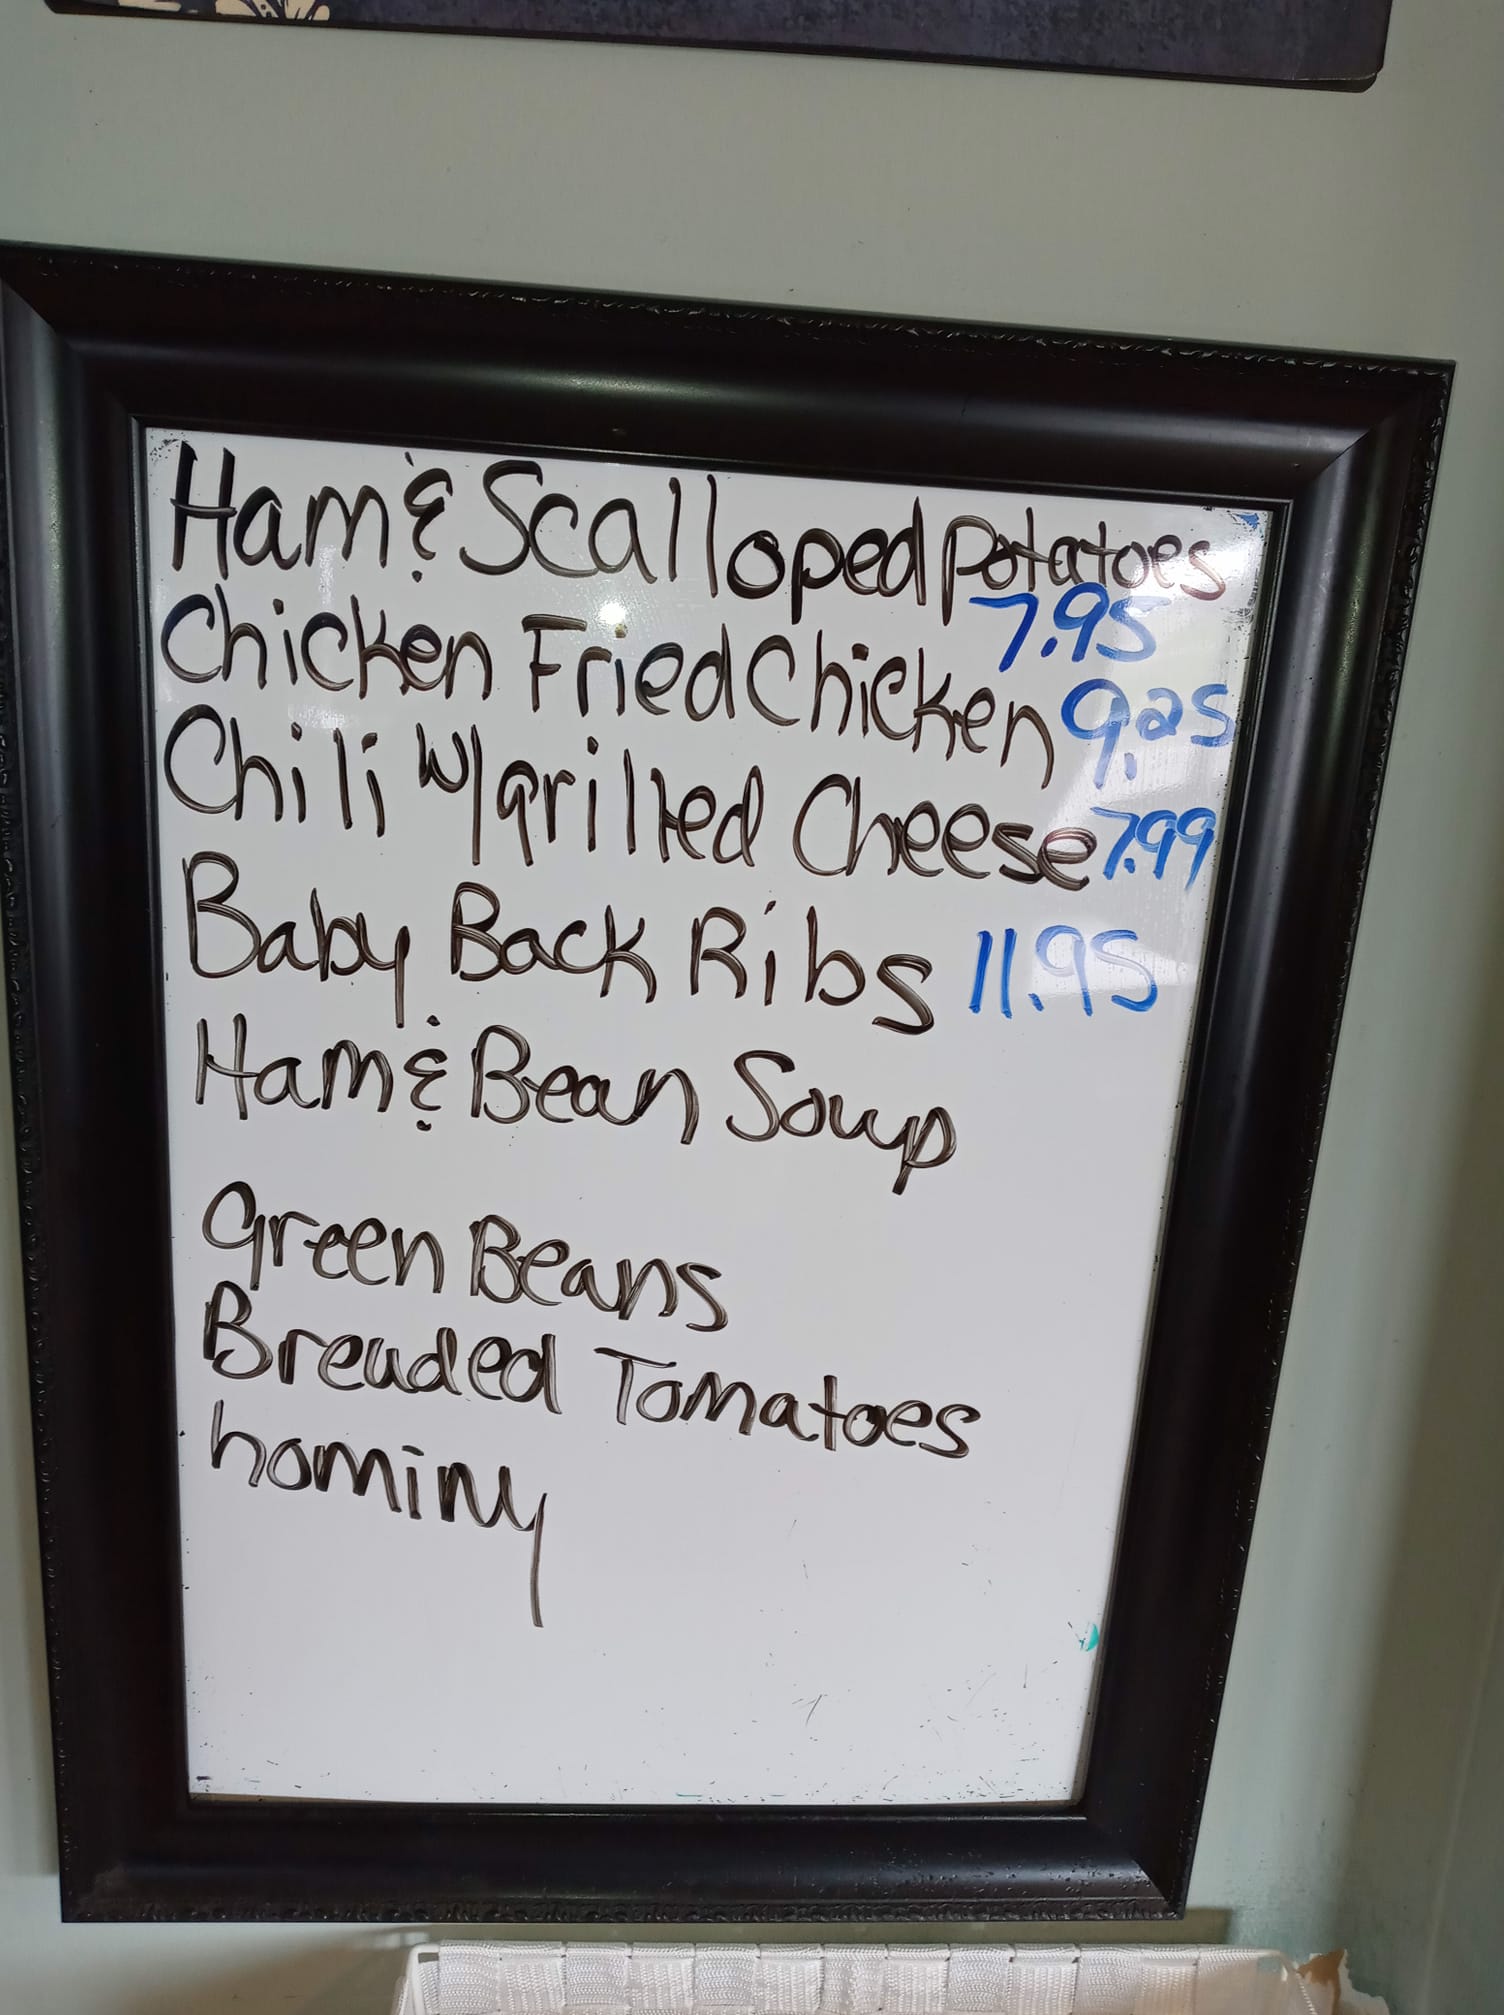 Ham & Scalloped potatoes
7.95
Chicken Fried Chicken 9.25
Chili w/ grilled Cheese 7.99
Baby Back Ribs 11.95
Ham & Bean Soup
Green Beans
Breaded Tomatoes
hominy